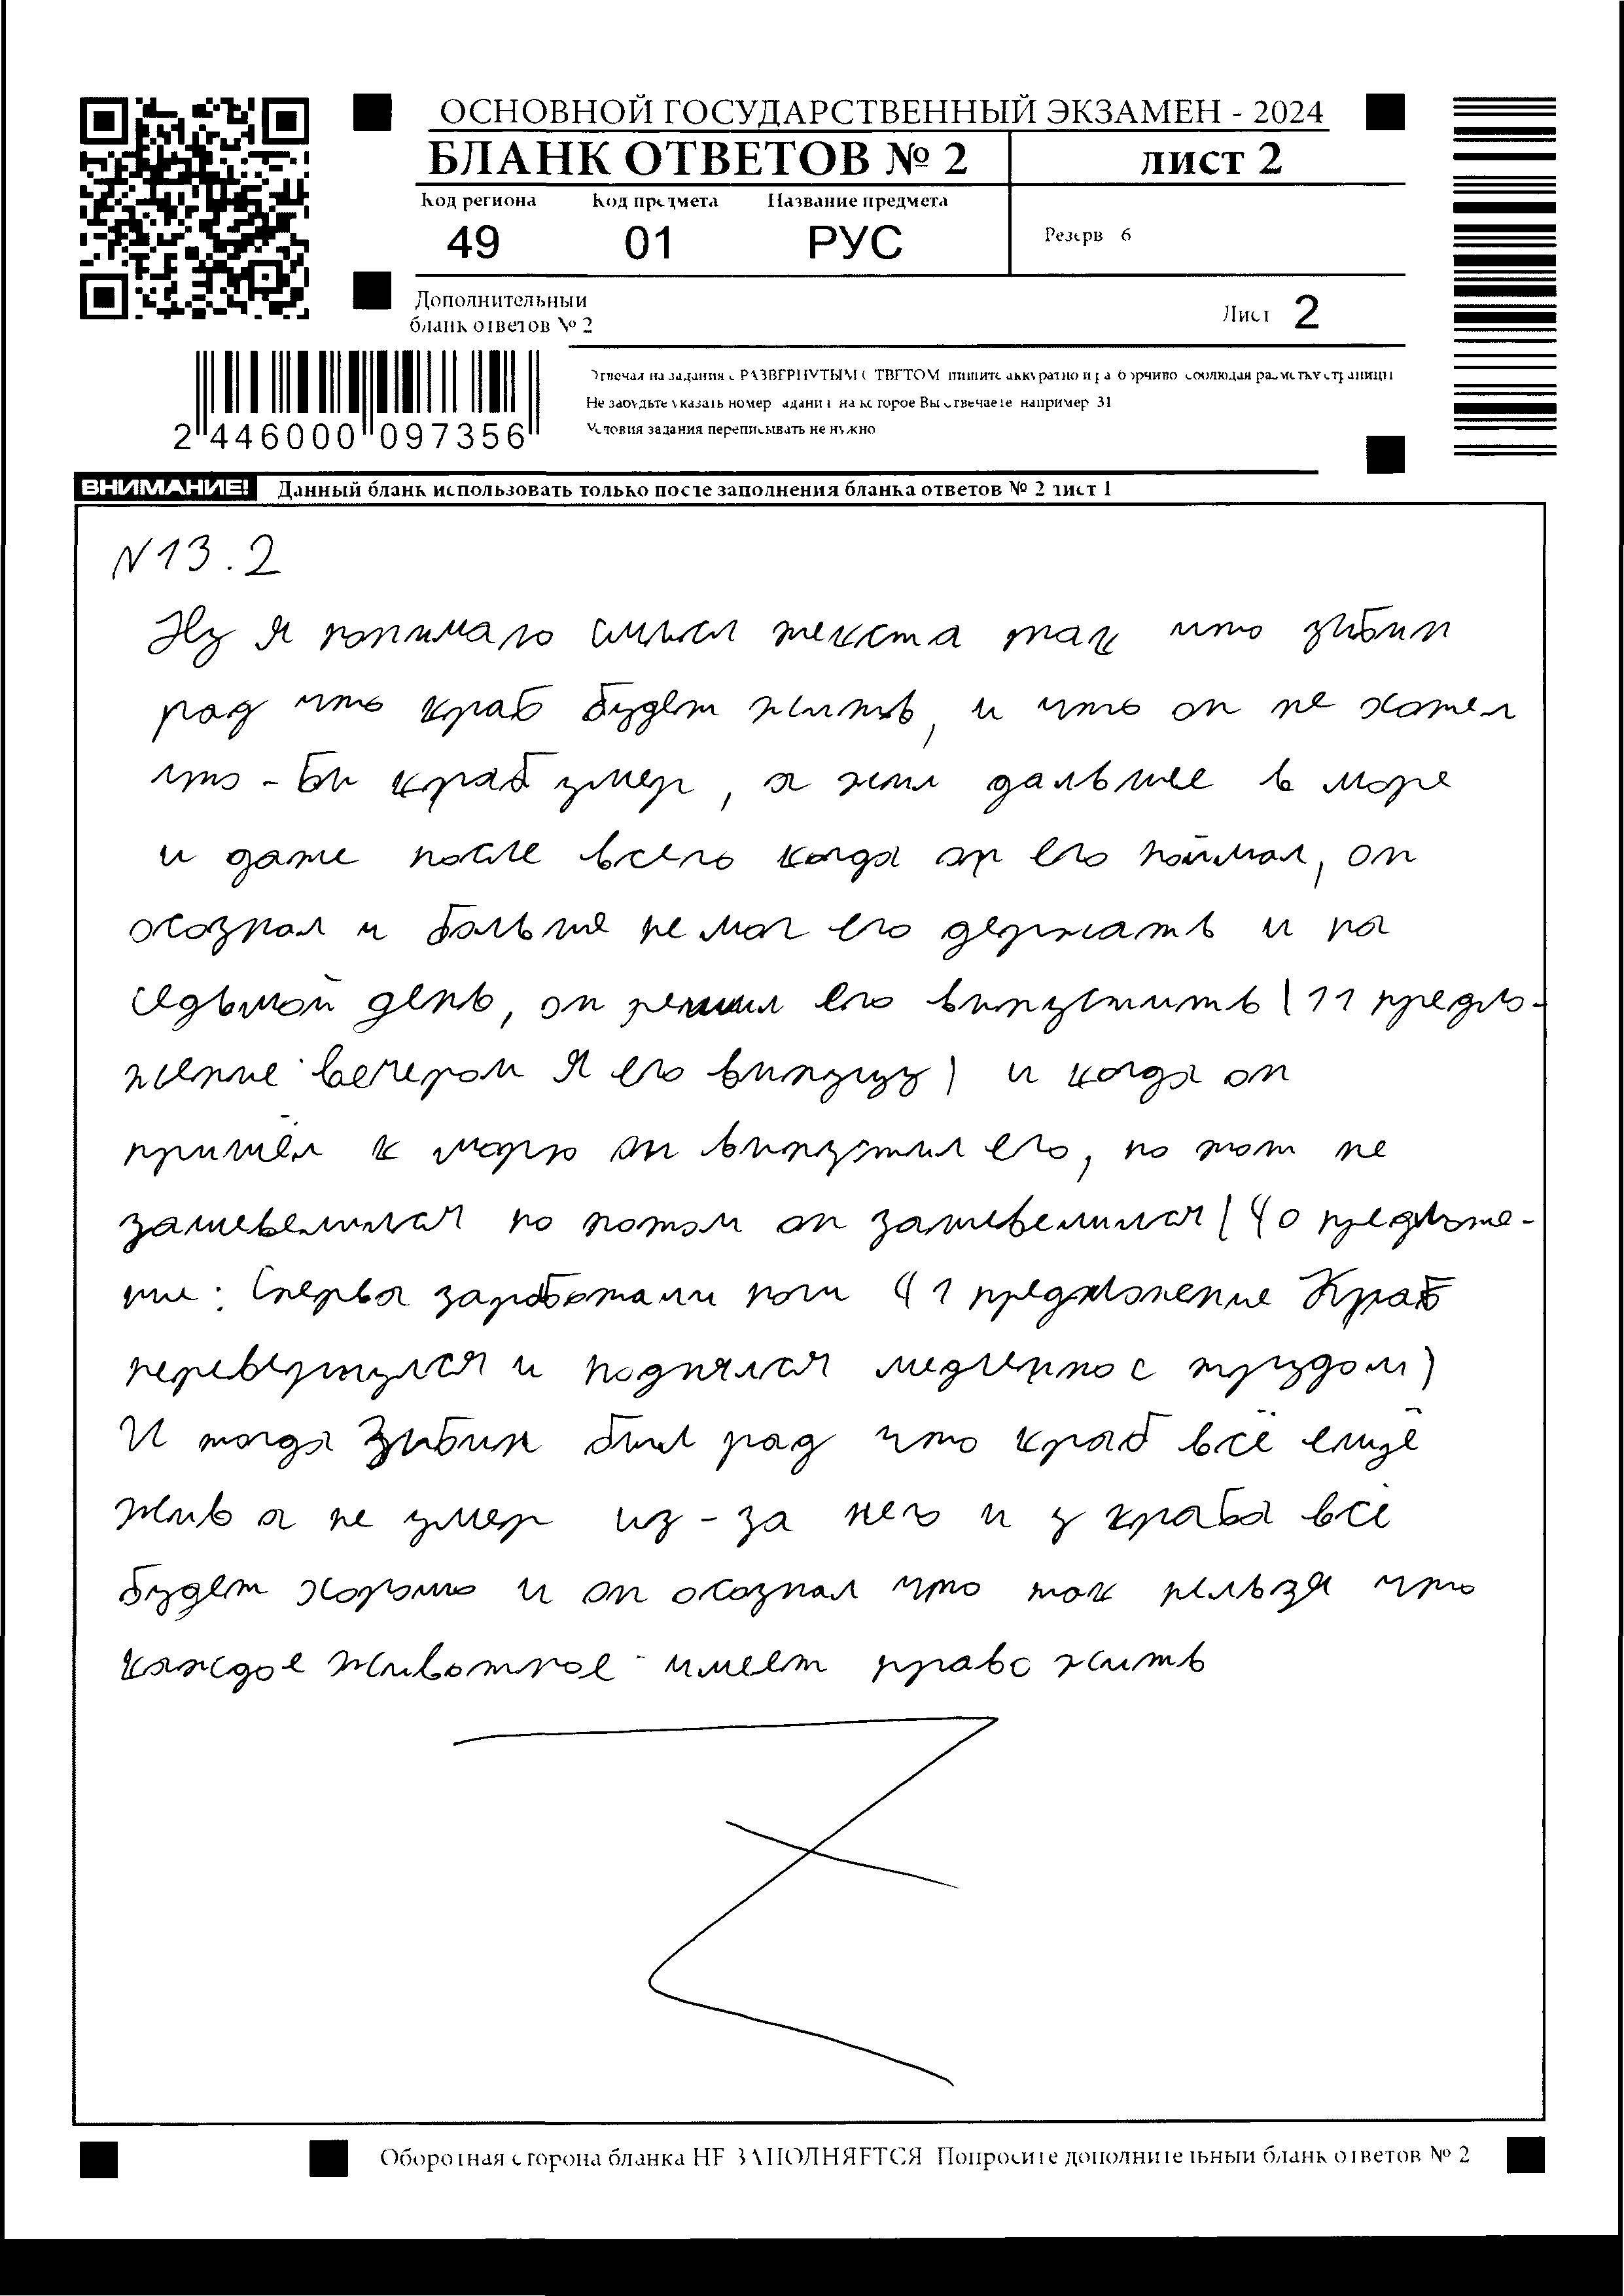 ОСНОВНОЙ ГОСУДАРСТВЕННЫЙ ЭКЗАМЕН - 2024
БЛАНК ОТВЕТОВ № 2 лист 2
Код региона Код предмета Название предмета
49 01 РУС
Резерв 6
Дополнительный
бланк ответов № 2
Лист 2
Отвечая на задания с РАЗВЕРНУТЫМ ОТВЕТОМ пишите аккуратно и разборчиво соблюдая разметку страницы
Не забудьте указать номер задания на которое Вы отвечаете например 31
Условия задания переписывать не нужно
2 446000 097356
ВНИМАНИЕ! Данный бланк использовать только после заполнения бланка ответов № 2 лист 1
N13.2
Ну я понимаю смысл текста так что зыбин
рад что краб будет жить, и что он не хотел
что-бы краб умер, а жил дальше в море
и даже после всего когда он его поймал, он
осознал и больше не мог его держать и на
седьмой день, он решил его выпустить (11 предло-
жение вечером я его выпущу) и когда он
пришёл к морю он выпустил его, но тот не
зашевелился но потом он зашевелился (40 предложе-
ние: Сперва заработали ноги 41 предложение Краб
перевернулся и поднялся медленно с трудом)
И тогда Зыбин был рад что краб всё ещё
жив а не умер из-за него и у краба всё
будет хорошо и он осознал что так нельзя что
каждое животное имеет право жить
Оборотная сторона бланка НЕ ЗАПОЛНЯЕТСЯ Попросите дополнительный бланк ответов № 2